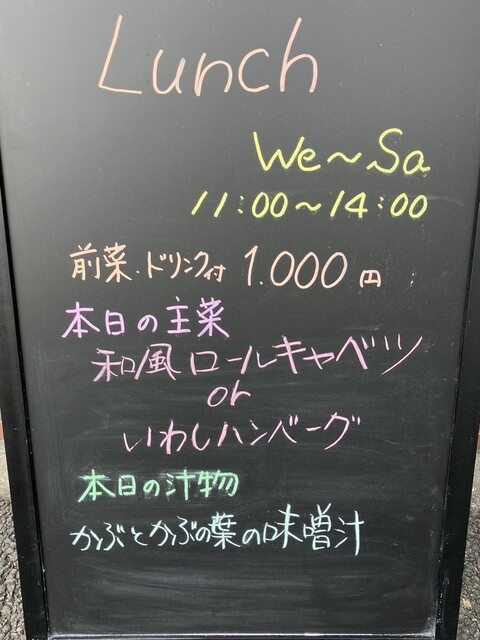 Lunch
We〜Sa
11:00〜14:00
前菜・ドリンク付 1.000円
本日の主菜
和風ロールキャベツ
or
いわしハンバーグ
本日の汁物
かぶとかぶの葉の味噌汁